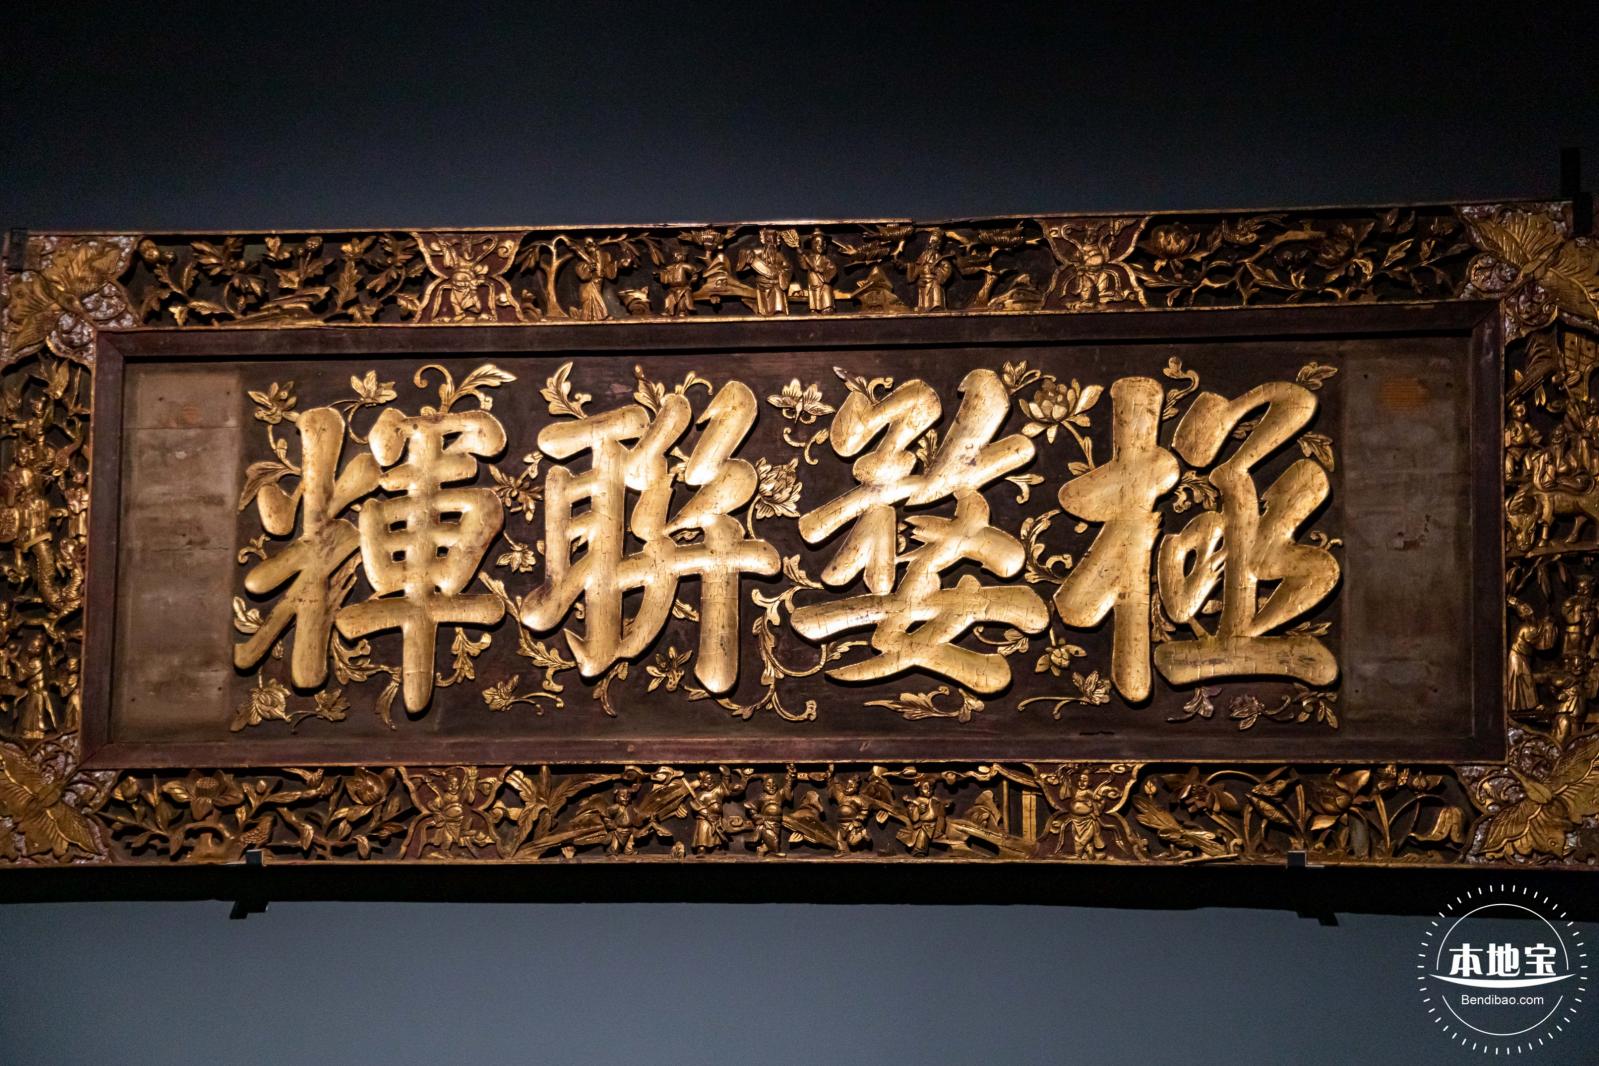 極婺聯輝
本地宝
Bendibao.com